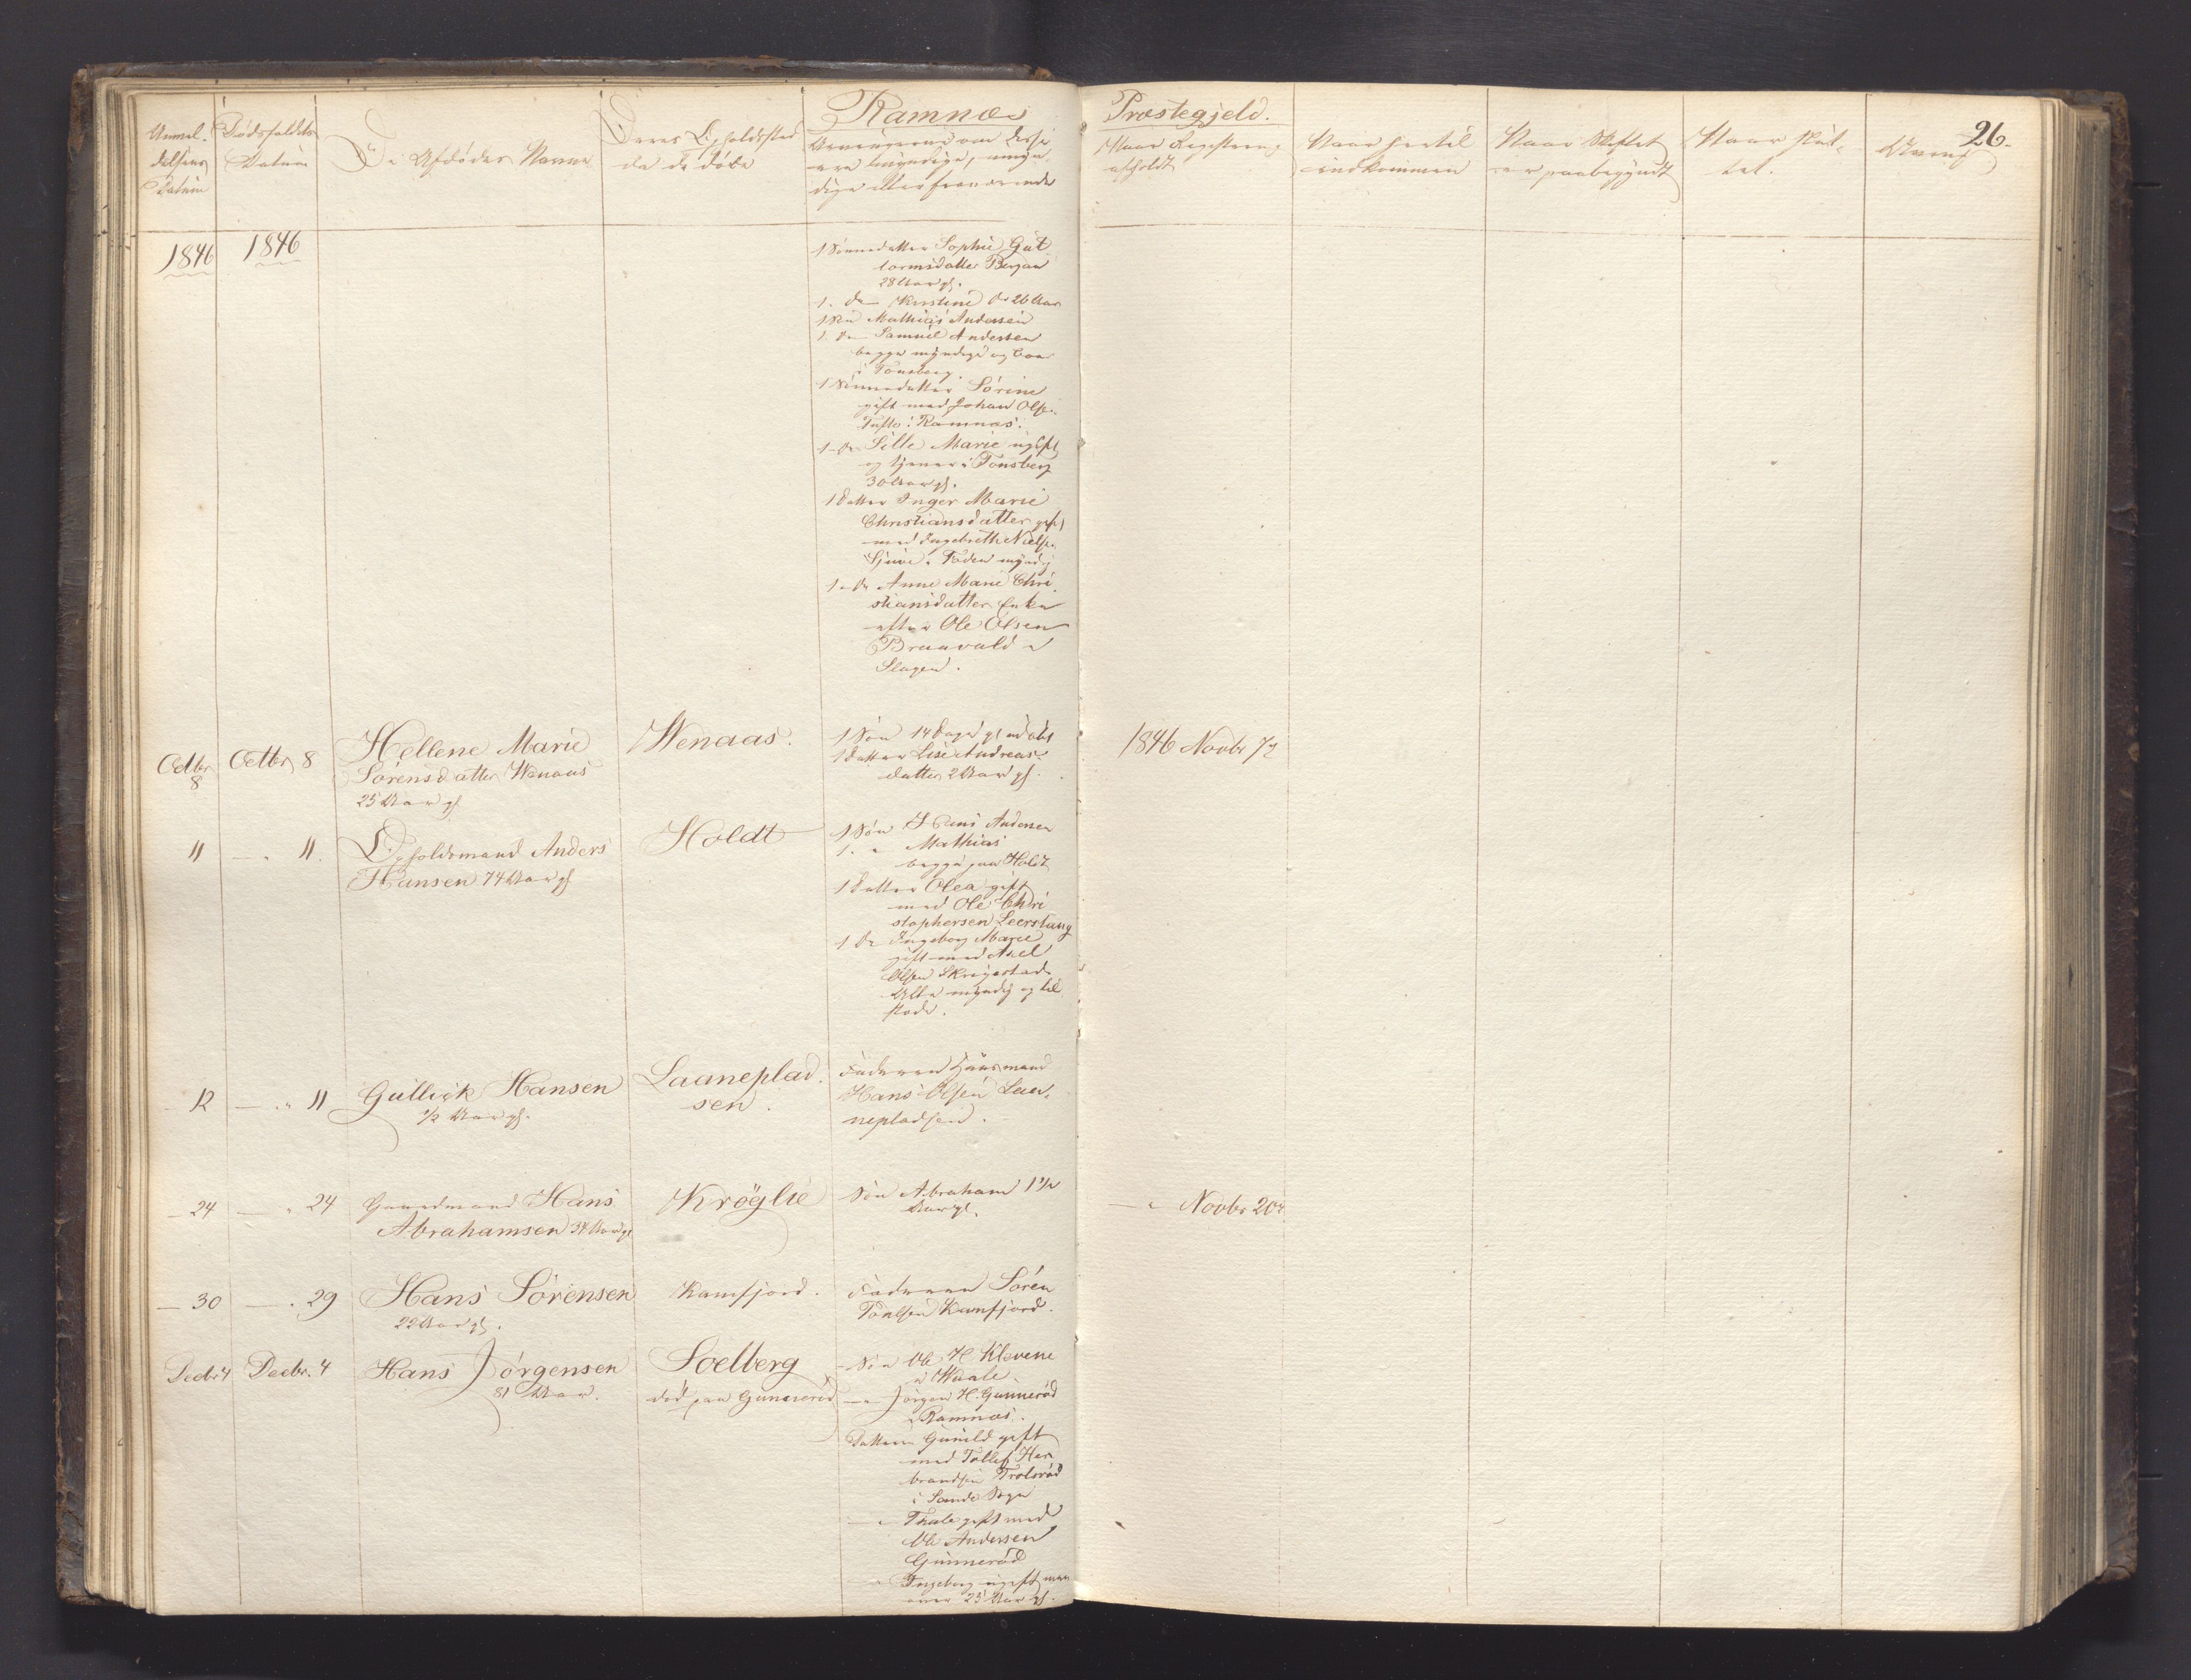 Ramnæs
Præstegjeld.
26.
Anmel-
delsens
Datum
Dødsfaldets
Datum
De Afdødes Navne
Deres Opholdssted
da de døde
Arvingerne om disse
ere umyndige, myn-
dige eller fraværende
Naar Registrering
afholdt
Naar hertil
indkommen
Naar Skiftet
er paabegyndt
Naar slut-
tet.
1846
1846
1 Sønnedatter Sophie Gut
tormsdatter Berjan
28 Aar gl.
1. do Kristine do 26 Aar
1 Søn Mathias Andersen
1. do Samuel Andersen
begge myndige og boer
i Tønsberg.
1 Sønnedatter Sørine
gift med Johan Olsen
Tufte i Ramnæs.
1 do Sille Marie ugift
og tjener i Tønsberg
30 Aar gl.
1 Datter Inger Marie
Christiansdatter gift
med Ingebreth Nielsen
1 do Anne Marie Chri
stiansdatter Enke
efter Ole Olsen
Slagen.
Octbr
8
Octbr 8
Hellene Marie
Sørensdatter Wenaas
25 Aar gl
Wenaas.
1 Søn 14 Dage gl
1 Datter Lise Andreas-
datter 2 Aar gl.
1846 Novbr 7de
11
— " 11.
Opholdsmand Anders
Hansen 74 Aar gl
Holdt
1 Søn Hans Andersen
1. " Mathias
begge paa Holdt
1 Datter Olea gift
med Ole Chri
stophersen Leerstang
1 do Ingeborg Marie
gift med Axel
Olsen Skrigestad
Alle myndige og til
stede.
12
— " 11
Gullick Hansen
1/2 Aar gl.
Laaneplad-
sen.
Faderen Huusmand
Hans Olsen Laa-
nepladsen.
— 24
— " 24
Gaardmand Hans
Abrahamsen 34 Aar gl
Krøglie
Søn Abraham 1 1/2
Aar gl.
— " Novbr 20de
— 30
— " 29
Hans Sørensen
22 Aar gl.
Kamfjord.
Faderen Søren
Poulsen Kamfjord.
Decbr 4
Decbr. 4
Hans Jørgensen
81 Aar.
Soelberg
død paa Gunnerød
Søn Ole H. Klevene
i Waale.
— " Jørgen H. Gunnerød
i Ramnæs.
Datter Gunild gift
med Tollef Her
brandsen
i Sande Sogn
— " Thale gift med
Ole Andersen
Gunnerød
— " Ingeborg ugift men
over 25 Aar gl.